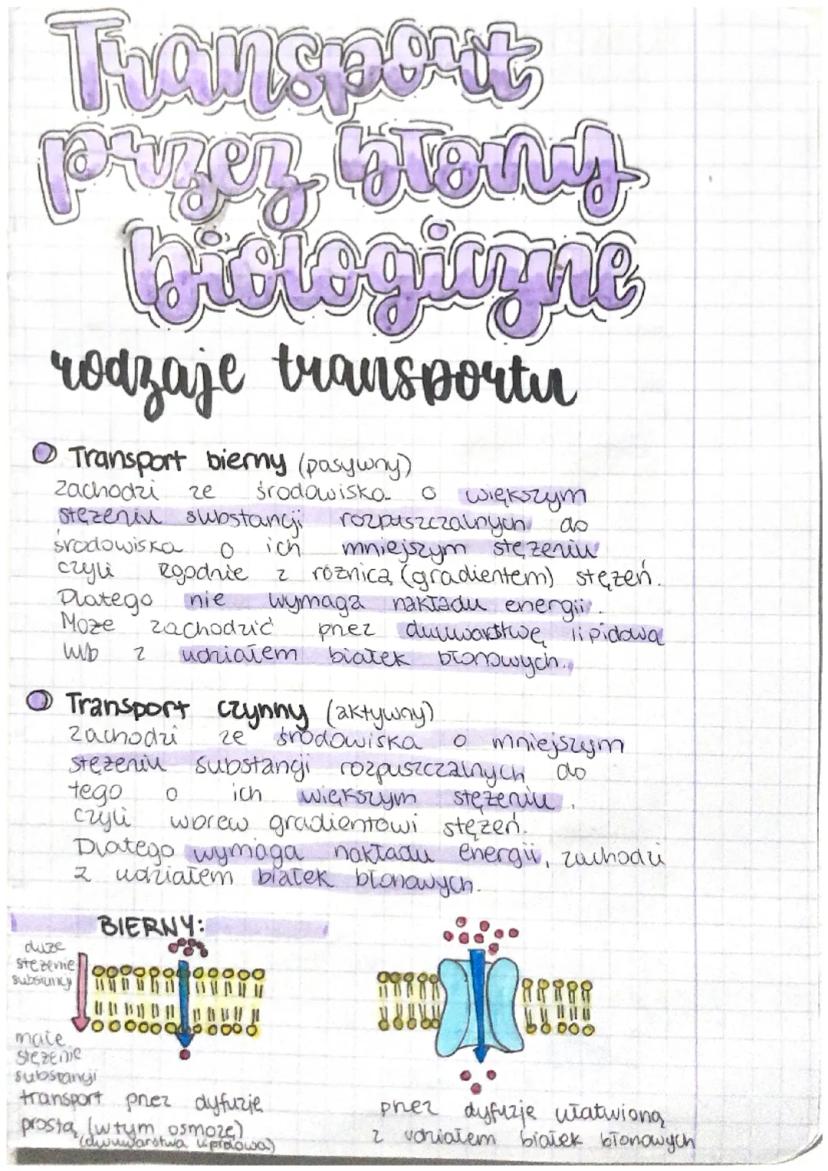 Transport
przez błony
biologiczne
rodzaje transportu
Transport bierny (pasywny)
zachodzi ze środowiska o większym
stężeniu substancji rozpuszczalnych do
środowiska o ich mniejszym stężeniu
czyli zgodnie z różnicą (gradientem) stężeń.
Dlatego nie wymaga nakładu energii.
Może zachodzić przez dwuwarstwę lipidową
lub z udziałem białek błonowych.
Transport czynny (aktywny)
zachodzi ze środowiska o mniejszym
stężeniu substancji rozpuszczalnych do
tego o ich większym stężeniu,
czyli wbrew gradientowi stężeń.
Dlatego wymaga nakładu energii, zachodzi
z udziałem białek błonowych.
BIERNY:
duże
stężenie
substancji
małe
stężenie
substancji
transport przez dyfuzję
prostą (w tym osmozę)
(dwuwarstwa lipidowa)
przez dyfuzję ułatwioną
z udziałem białek błonowych